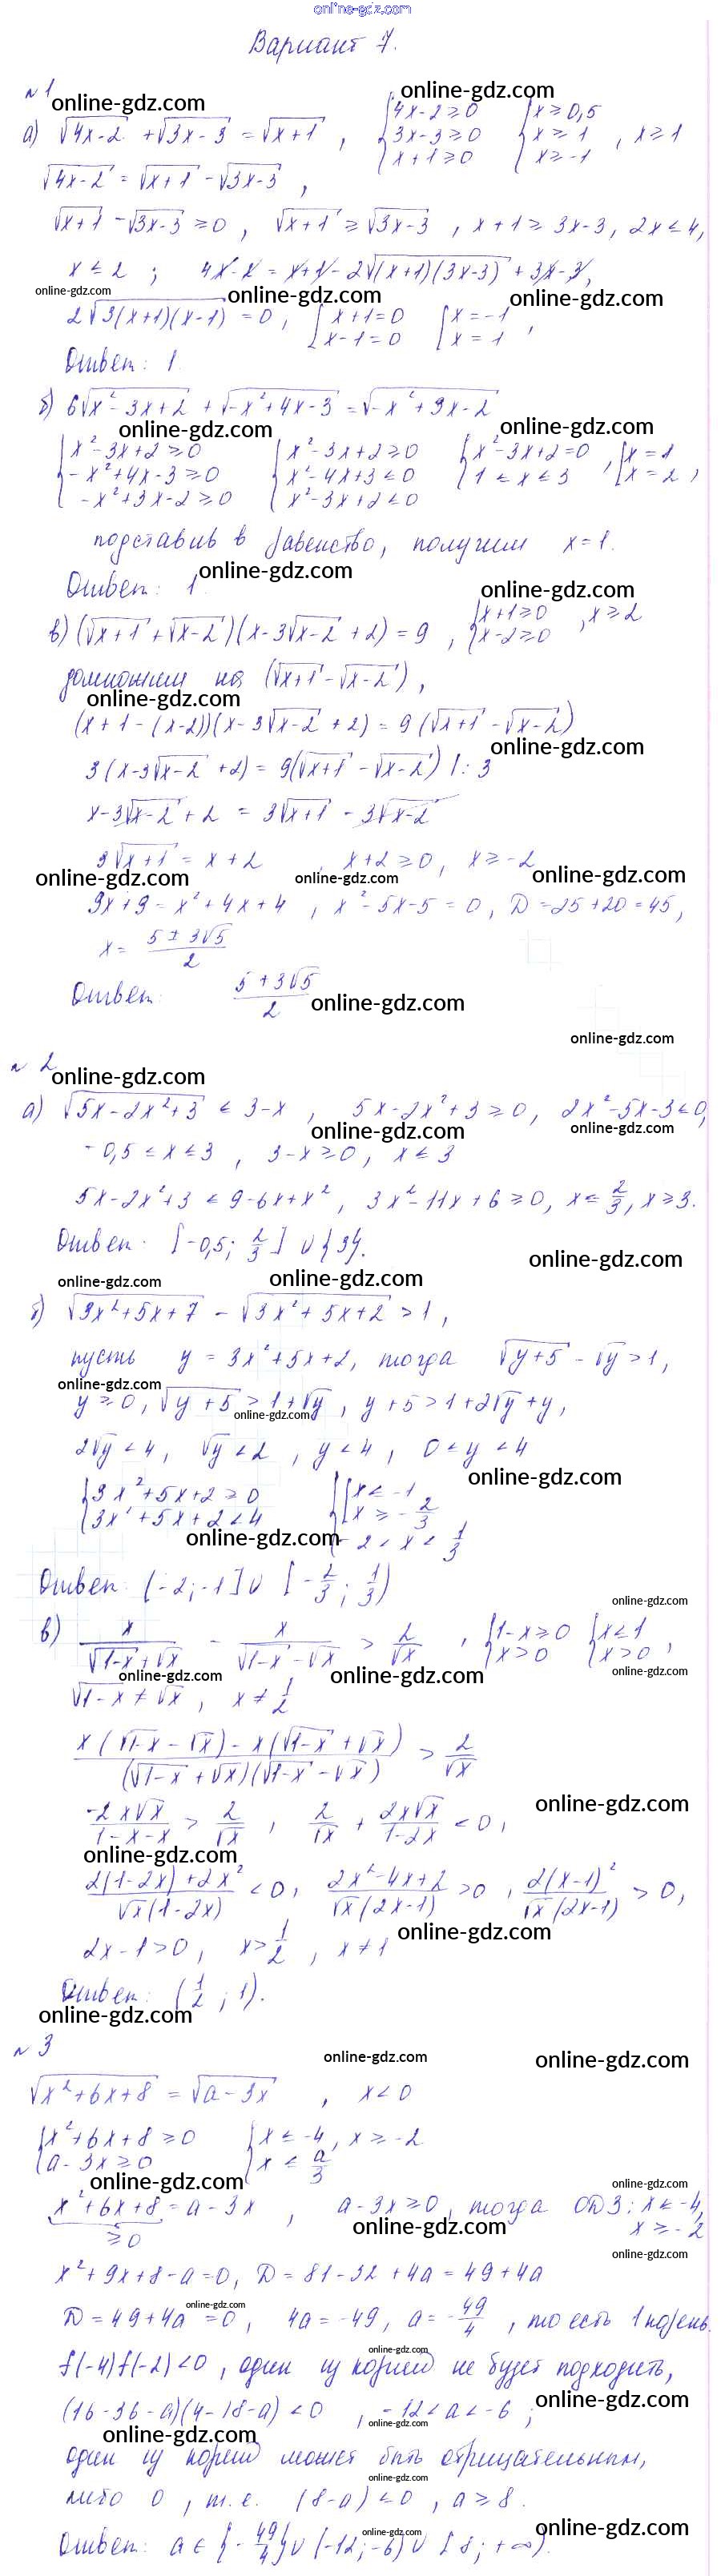 online-gdz.com
Вариант 7.
№1
online-gdz.com online-gdz.com
а) √(4x-2) + √(3x-3) = √(x+1) , { 4x-2 ≥ 0 { x ≥ 0,5
3x-3 ≥ 0 x ≥ 1 , x ≥ 1
x+1 ≥ 0 x ≥ -1
√(4x-2) = √(x+1) - √(3x-3) ,
√(x+1) - √(3x-3) ≥ 0 , √(x+1) ≥ √(3x-3) , x+1 ≥ 3x-3, 2x ≤ 4,
x ≤ 2 ; 4x-2 = x+1 - 2√((x+1)(3x-3)) + 3x-3,
online-gdz.com online-gdz.com online-gdz.com
2√(3(x+1)(x-1)) = 0 , [ x+1=0 [ x=-1
x-1=0 x=1 ,
Ответ: 1.
б) 6√(x²-3x+2) + √(-x²+4x-3) = √(-x²+3x-2)
online-gdz.com online-gdz.com
{ x²-3x+2 ≥ 0 { x²-3x+2 ≥ 0 { x²-3x+2=0 , [ x=1
-x²+4x-3 ≥ 0 x²-4x+3 ≤ 0 1 ≤ x ≤ 3 x=2 ,
-x²+3x-2 ≥ 0 x²-3x+2 ≤ 0
подставив в равенство, получим x=1.
online-gdz.com
Ответ: 1.
online-gdz.com
в) (√(x+1) + √(x-2))(x-3√(x-2)+2) = 9 , { x+1 ≥ 0 , x ≥ 2
x-2 ≥ 0
домножим на (√(x+1) - √(x-2)) ,
online-gdz.com
(x+1-(x-2))(x-3√(x-2)+2) = 9(√(x+1) - √(x-2))
online-gdz.com
3(x-3√(x-2)+2) = 9(√(x+1) - √(x-2)) |: 3
x-3√(x-2)+2 = 3√(x+1) - 3√(x-2)
3√(x+1) = x+2 , x+2 ≥ 0, x ≥ -2
online-gdz.com online-gdz.com online-gdz.com
9x+9 = x²+4x+4 , x²-5x-5=0, D=25+20=45,
x = (5±3√5)/2
Ответ: (5+3√5)/2
online-gdz.com
online-gdz.com
№2
online-gdz.com
а) √(5x-2x²+3) ≤ 3-x , 5x-2x²+3 ≥ 0, 2x²-5x-3 ≤ 0,
online-gdz.com online-gdz.com
-0,5 ≤ x ≤ 3 , 3-x ≥ 0, x ≤ 3
5x-2x²+3 ≤ 9-6x+x² , 3x²-11x+6 ≥ 0, x ≤ 2/3, x ≥ 3.
Ответ: [-0,5; 2/3] ∪ {3}.
online-gdz.com
online-gdz.com online-gdz.com
б) √(3x²+5x+7) - √(3x²+5x+2) > 1 ,
пусть y = 3x²+5x+2, тогда √(y+5) - √y > 1,
online-gdz.com
y ≥ 0, √(y+5) > 1+√y , y+5 > 1+2√y+y,
online-gdz.com
2√y < 4, √y < 2 , y < 4 , 0 ≤ y < 4
online-gdz.com
{ 3x²+5x+2 ≥ 0 { [ x ≤ -1
3x²+5x+2 < 4 x ≥ -2/3
-2 < x < 1/3
online-gdz.com
Ответ: (-2; -1] ∪ [-2/3; 1/3)
online-gdz.com
в) x/(√(1-x)+√x) - x/(√(1-x)-√x) > 2/√x , { 1-x ≥ 0 { x ≤ 1
x > 0 x > 0 ,
online-gdz.com online-gdz.com online-gdz.com
√(1-x) ≠ √x , x ≠ 1/2
(x(√(1-x)-√x) - x(√(1-x)+√x))/((√(1-x)+√x)(√(1-x)-√x)) > 2/√x
online-gdz.com
-2x√x/(1-x-x) > 2/√x , 2/√x + 2x√x/(1-2x) < 0 ,
online-gdz.com
(2(1-2x)+2x²)/(√x(1-2x)) < 0, (2x²-4x+2)/(√x(2x-1)) > 0 , 2(x-1)²/(√x(2x-1)) > 0,
online-gdz.com
2x-1 > 0 , x > 1/2 , x ≠ 1
Ответ: (1/2 ; 1).
online-gdz.com
№3
online-gdz.com online-gdz.com
√(x²+6x+8) = √(a-3x) , x < 0
{ x²+6x+8 ≥ 0 { x ≤ -4, x ≥ -2
a-3x ≥ 0 x ≤ a/3
online-gdz.com online-gdz.com
x²+6x+8 = a-3x , a-3x ≥ 0, тогда ОДЗ: x ≤ -4,
≥ 0 online-gdz.com x ≥ -2
online-gdz.com
x²+9x+8-a=0, D=81-32+4a=49+4a
online-gdz.com
D=49+4a=0, 4a=-49, a=-49/4 , то есть 1 корень.
online-gdz.com
f(-4)f(-2)<0 , один из корней не будет подходить,
online-gdz.com
(16-36-a)(4-18-a) < 0 , -12 < a < -6 ;
online-gdz.com
online-gdz.com
один из корней может быть отрицательным,
online-gdz.com
либо 0 , т.е. (8-a) ≤ 0 , a ≥ 8 .
online-gdz.com
online-gdz.com
Ответ: a ∈ {-49/4} ∪ (-12; -6) ∪ [8; +∞).